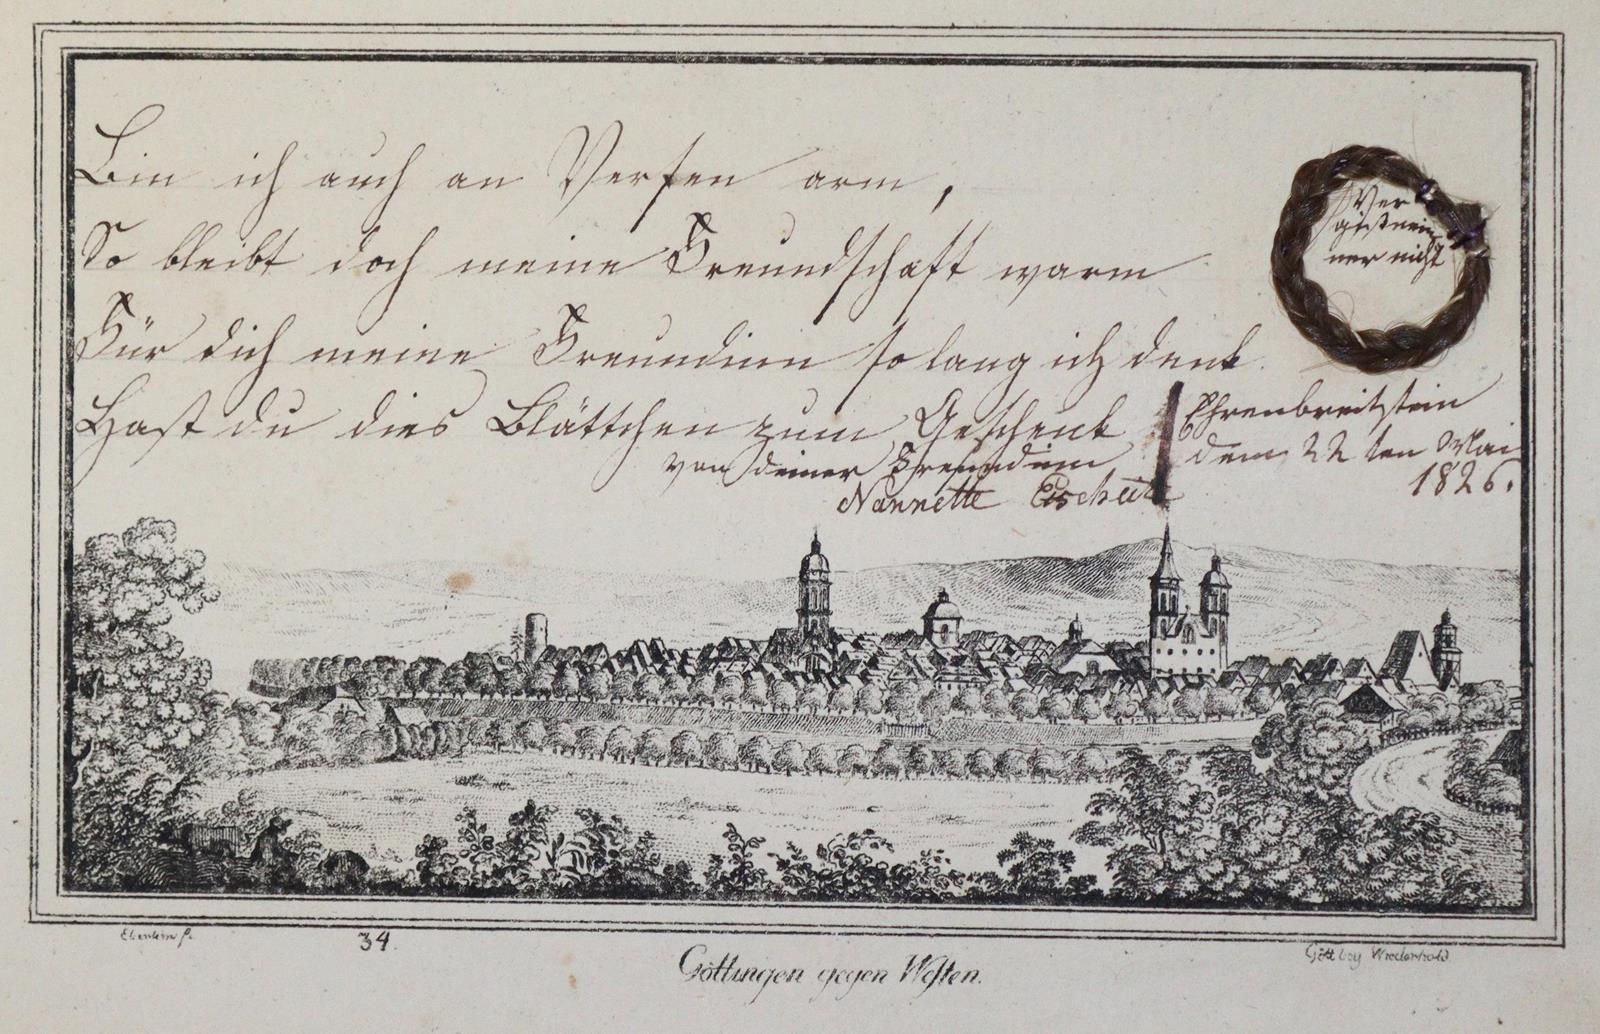 Bin ich auch an Versen arm,
So bleibt doch meine Freundschaft warm
Für dich meine Freundinn so lang ich denk
Hast du dies Blättchen zum Geschenk
von deiner Freundem
Nannette
Ehrenbreitstein
dem 22 ten Mai
1826.
Ver
gißmein
ner nicht
34.
Göttingen gegen Westen.
Gött bey Wiederhold